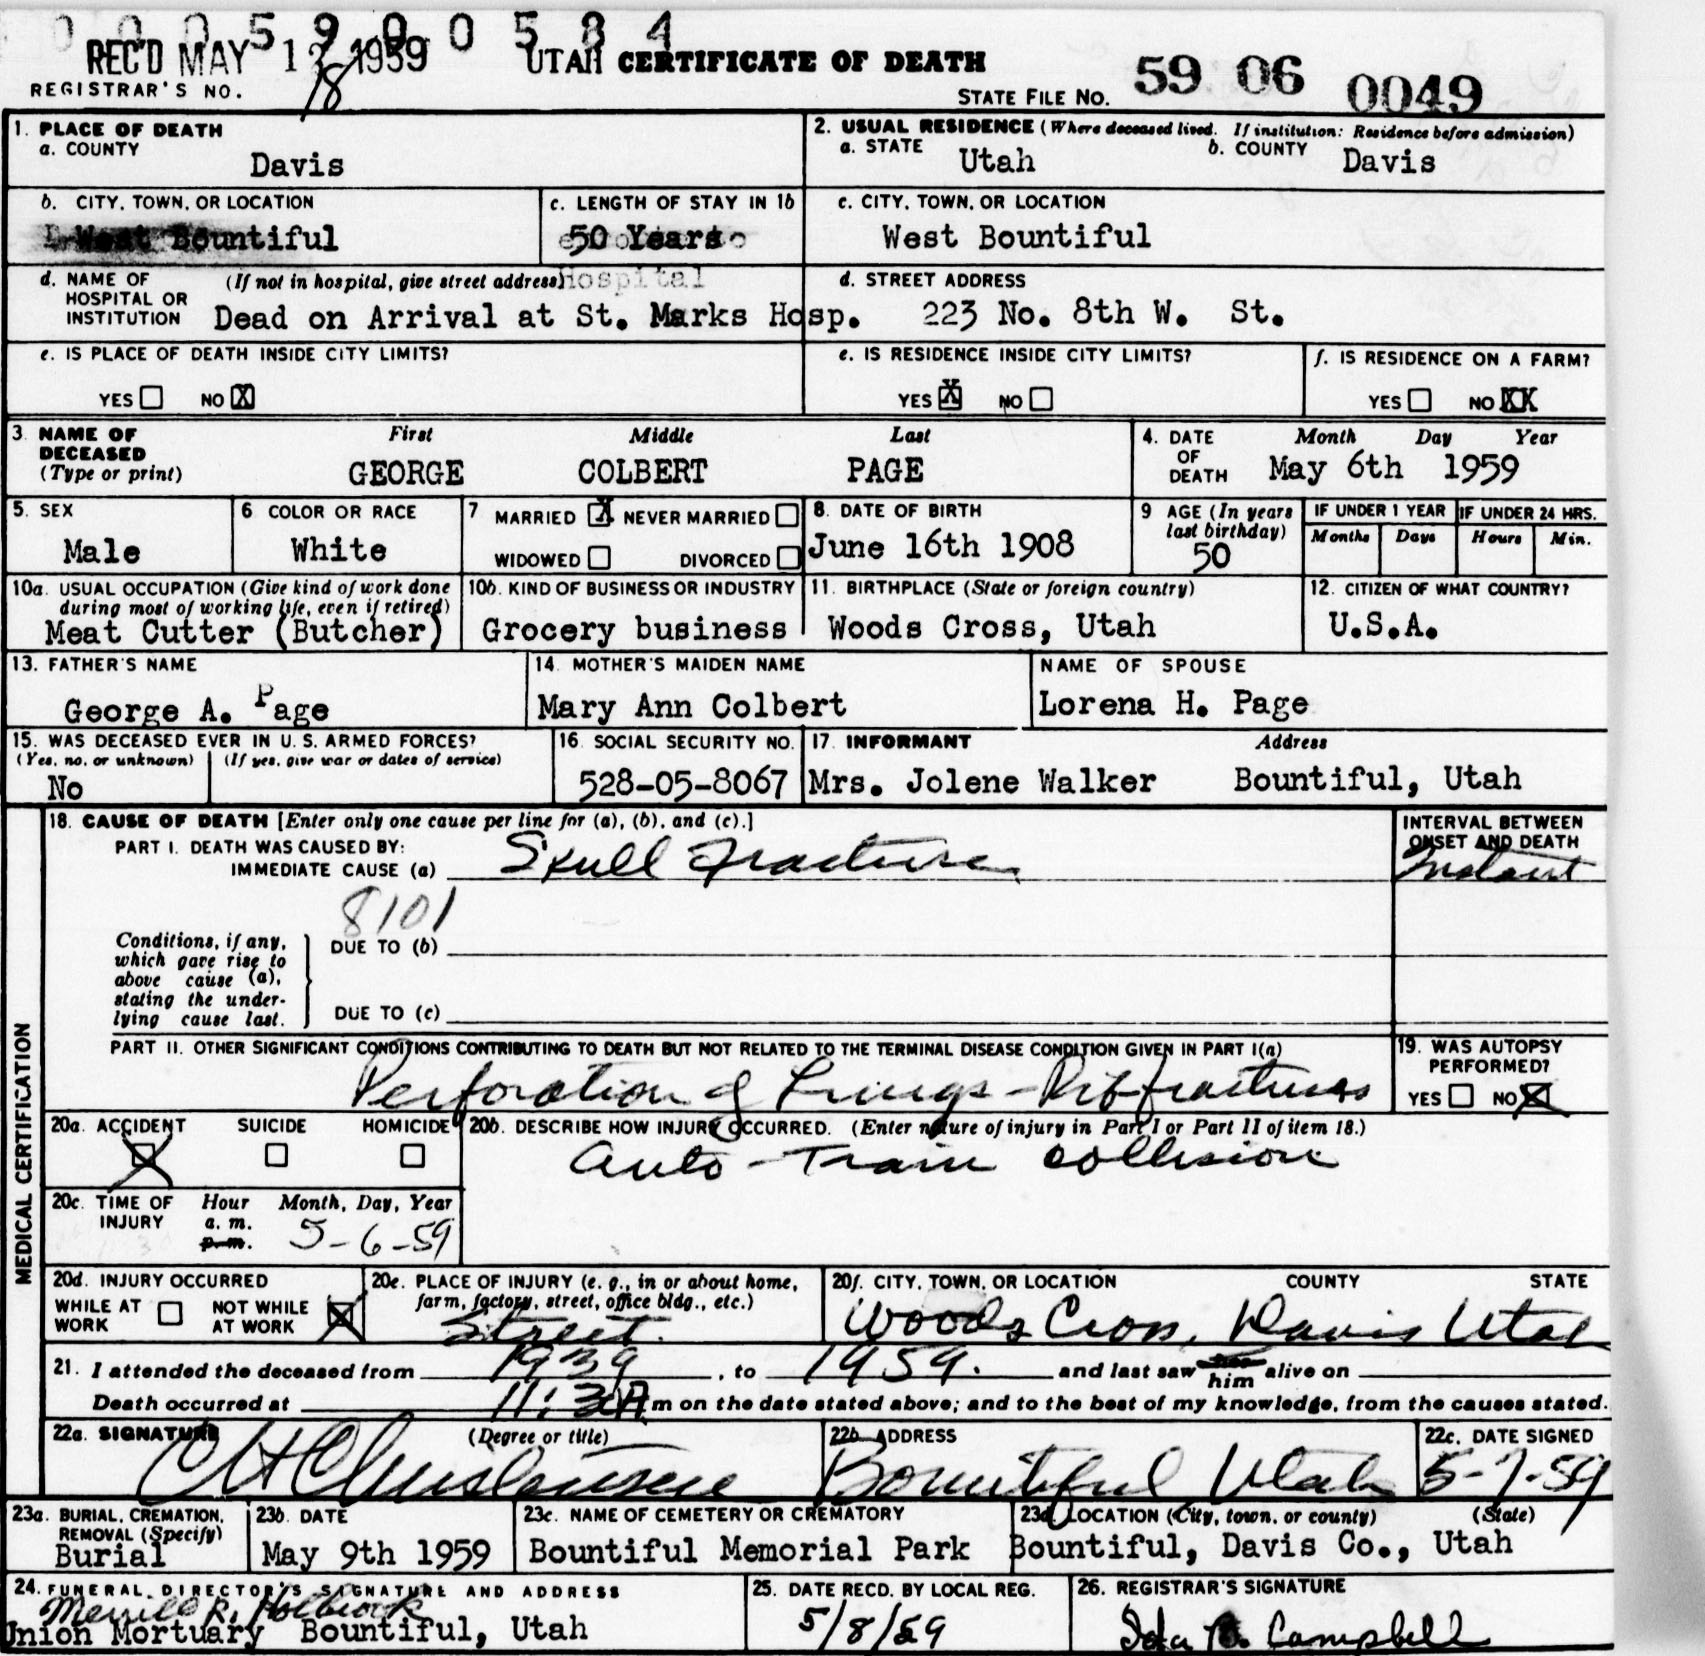 0 0 0 5 9 0 0 5 8 4
REC'D MAY 1 1959 UTAH CERTIFICATE OF DEATH
REGISTRAR'S NO. 18 STATE FILE NO. 59 06 0049
1. PLACE OF DEATH
a. COUNTY Davis
2. USUAL RESIDENCE (Where deceased lived. If institution: Residence before admission)
a. STATE Utah b. COUNTY Davis
b. CITY, TOWN, OR LOCATION West Bountiful
c. LENGTH OF STAY IN 1b 50 Years
c. CITY, TOWN, OR LOCATION West Bountiful
d. NAME OF HOSPITAL OR INSTITUTION (If not in hospital, give street address) Hospital
Dead on Arrival at St. Marks Hosp.
d. STREET ADDRESS 223 No. 8th W. St.
e. IS PLACE OF DEATH INSIDE CITY LIMITS?
YES NO X
e. IS RESIDENCE INSIDE CITY LIMITS?
YES X NO
f. IS RESIDENCE ON A FARM?
YES NO XX
3. NAME OF DECEASED (Type or print)
First Middle Last
GEORGE COLBERT PAGE
4. DATE OF DEATH Month Day Year
May 6th 1959
5. SEX Male
6 COLOR OR RACE White
7 MARRIED X NEVER MARRIED
WIDOWED DIVORCED
8. DATE OF BIRTH June 16th 1908
9 AGE (In years last birthday) 50
IF UNDER 1 YEAR Months Days
IF UNDER 24 HRS. Hours Min.
10a. USUAL OCCUPATION (Give kind of work done during most of working life, even if retired)
Meat Cutter (Butcher)
10b. KIND OF BUSINESS OR INDUSTRY
Grocery business
11. BIRTHPLACE (State or foreign country)
Woods Cross, Utah
12. CITIZEN OF WHAT COUNTRY?
U.S.A.
13. FATHER'S NAME
George A. Page
14. MOTHER'S MAIDEN NAME
Mary Ann Colbert
NAME OF SPOUSE
Lorena H. Page
15. WAS DECEASED EVER IN U.S. ARMED FORCES?
(Yes, no, or unknown) (If yes, give war or dates of service)
No
16. SOCIAL SECURITY NO.
528-05-8067
17. INFORMANT Address
Mrs. Jolene Walker Bountiful, Utah
MEDICAL CERTIFICATION
18. CAUSE OF DEATH [Enter only one cause per line for (a), (b), and (c).]
PART I. DEATH WAS CAUSED BY:
IMMEDIATE CAUSE (a) Skull Fracture
INTERVAL BETWEEN ONSET AND DEATH
Instant
8101
Conditions, if any, which gave rise to above cause (a), stating the underlying cause last.
DUE TO (b)
DUE TO (c)
PART II. OTHER SIGNIFICANT CONDITIONS CONTRIBUTING TO DEATH BUT NOT RELATED TO THE TERMINAL DISEASE CONDITION GIVEN IN PART I(a)
Perforation of Lungs - Rib fractures
19. WAS AUTOPSY PERFORMED?
YES NO X
20a. ACCIDENT X SUICIDE HOMICIDE
20b. DESCRIBE HOW INJURY OCCURRED. (Enter nature of injury in Part I or Part II of item 18.)
Auto-Train collision
20c. TIME OF INJURY Hour a.m. p.m. Month, Day, Year
5-6-59
20d. INJURY OCCURRED
WHILE AT WORK NOT WHILE AT WORK X
20e. PLACE OF INJURY (e. g., in or about home, farm, factory, street, office bldg., etc.)
Street.
20f. CITY, TOWN, OR LOCATION COUNTY STATE
Woods Cross, Davis Utah
21. I attended the deceased from 1939, to 1959. and last saw him alive on
Death occurred at 11:30 A m on the date stated above; and to the best of my knowledge, from the causes stated.
22a. SIGNATURE (Degree or title)
22b. ADDRESS
Bountiful Utah
22c. DATE SIGNED
5-7-59
23a. BURIAL, CREMATION, REMOVAL (Specify)
Burial
23b. DATE
May 9th 1959
23c. NAME OF CEMETERY OR CREMATORY
Bountiful Memorial Park
23d. LOCATION (City, town, or county) (State)
Bountiful, Davis Co., Utah
24. FUNERAL DIRECTOR'S SIGNATURE AND ADDRESS
Merrill R. Holbrook
Union Mortuary Bountiful, Utah
25. DATE RECD. BY LOCAL REG.
5/8/59
26. REGISTRAR'S SIGNATURE
Ida Campbell